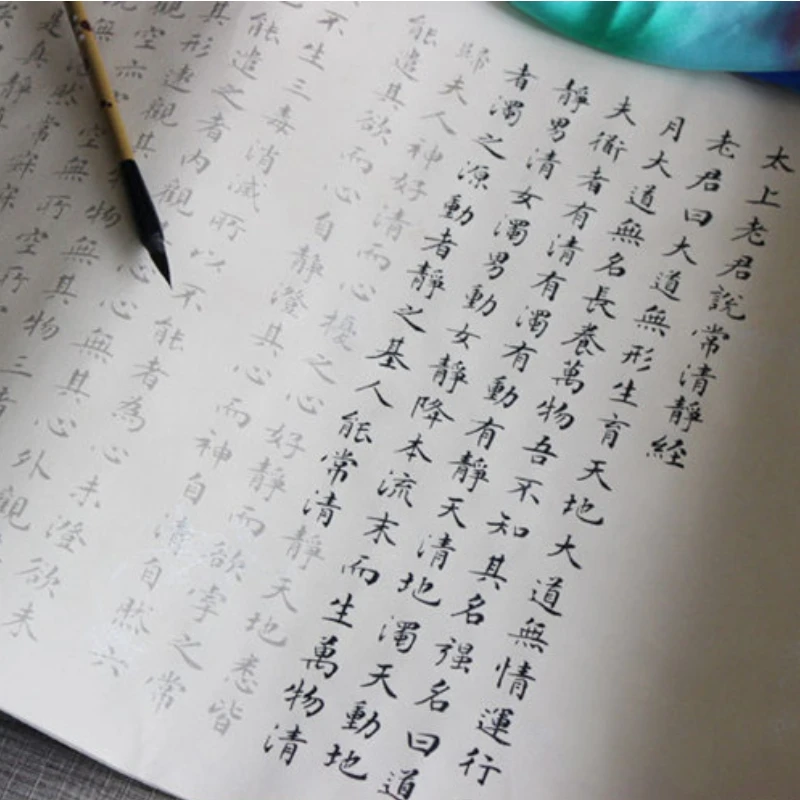 太上老君說常清靜經
老君曰大道無形生育天地大道無情運行
月大道無名長養萬物吾不知其名强名曰道
夫衜者有清有濁有動有靜天清地濁天動地
靜男清女濁男動女靜降本流末而生萬物清
者濁之源動者靜之基人能常清靜天地悉皆
歸夫人神好清而心擾之心好靜而欲牽之常
能遣其欲而心自靜澄其心而神自清自然六
不生三毒消滅所以不能者為心未澄欲未
能遣之者內觀其心心無其心外觀
其形遠觀其物物無其物三者
觀空亦空空無所空